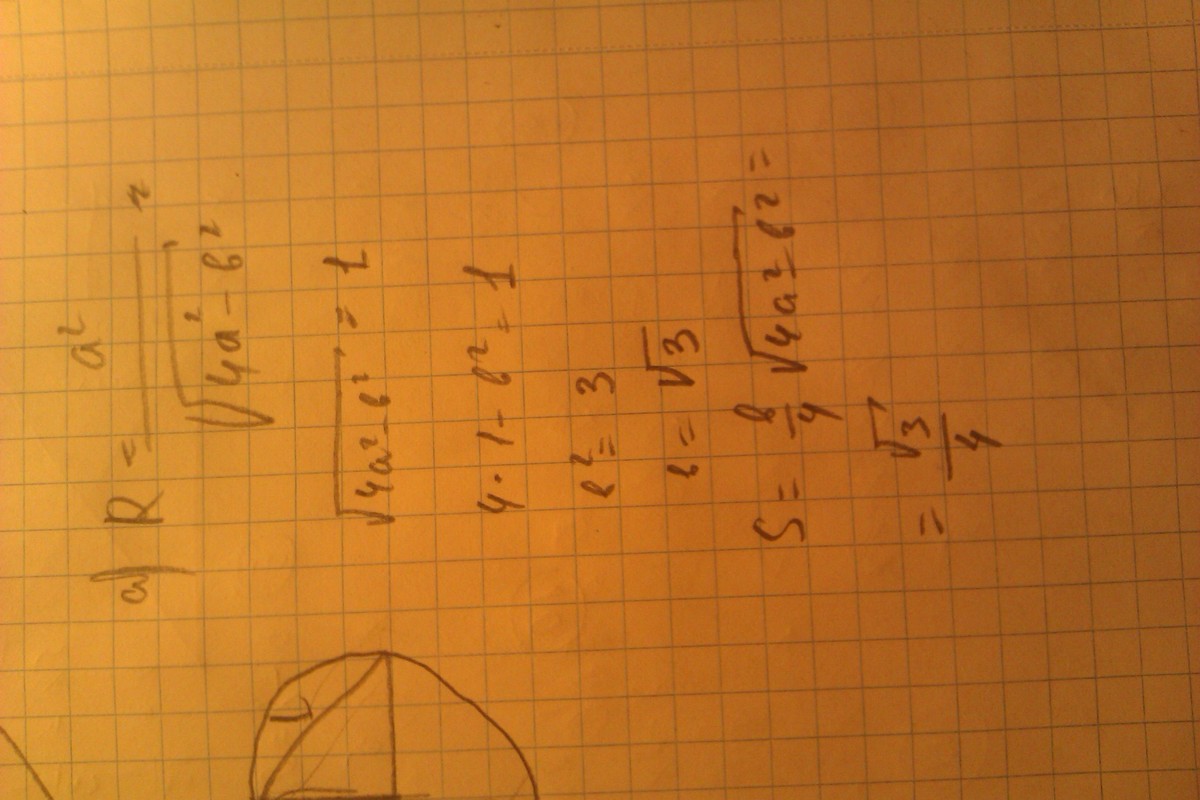 а) R = a² / √(4a² - b²) =
√(4a² - b²) = 1
4 · 1 - b² = 1
b² = 3
b = √3
S = b/4 √(4a² - b²) =
= √3/4
1